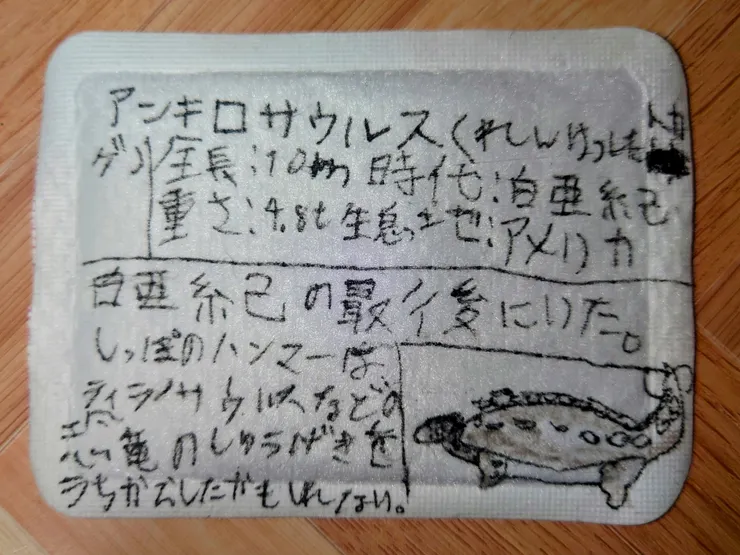 アンキロサウルス
全長:10m 時代:白亜紀
重さ:4.8t 生息 アメリカ
白亜紀の最後にいた。
しっぽのハンマーは
ティラノサウルスなどの
恐竜のしゅうげきを
うちかえしたかもしれない。